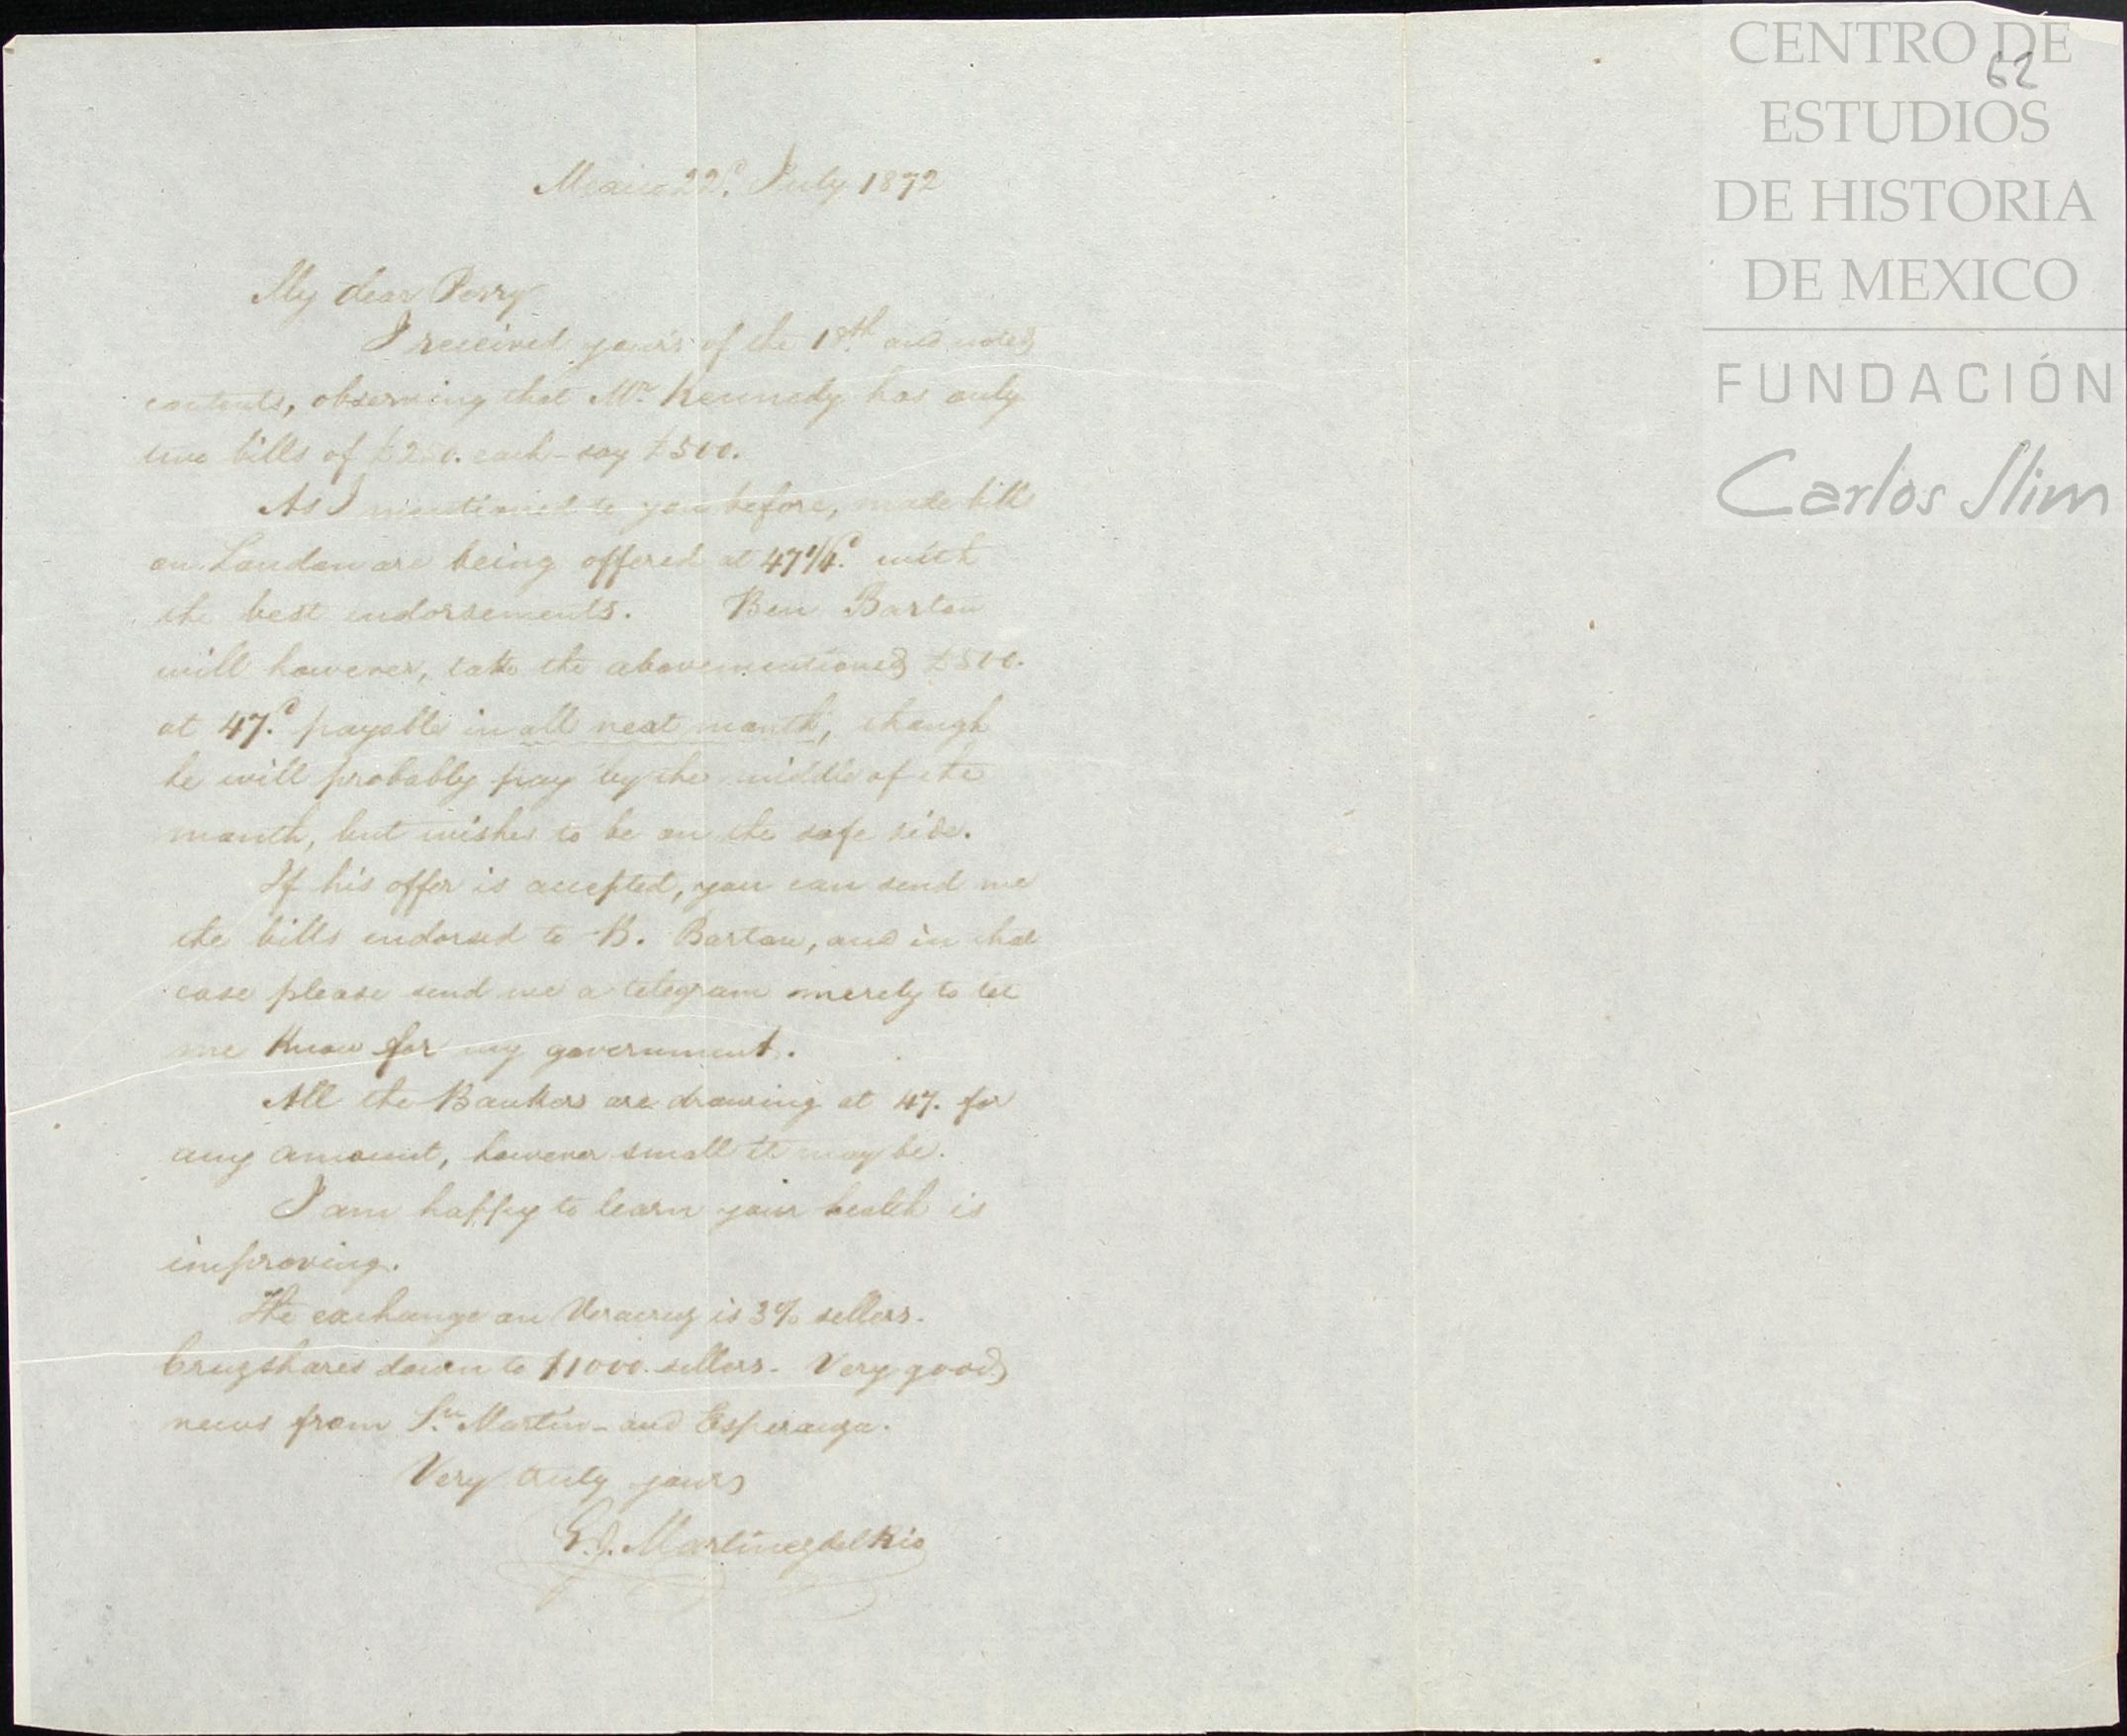 62
CENTRO DE
ESTUDIOS
DE HISTORIA
DE MEXICO
FUNDACIÓN
Carlos Slim
Mexico 22d July 1872
My dear Perry
I received yours of the 18th and noted
contents, observing that Mr Kennedy has only
two bills of £250. each - say £500.
As I mentioned to you before, made bills
on London are being offered at 47 1/4d with
the best endorsements. Ben Barton
will however, take the abovementioned £500.
at 47.d payable in all next month, though
he will probably pay by the middle of the
month, but wishes to be on the safe side.
If his offer is accepted, you can send me
the bills endorsed to B. Barton, and in that
case please send me a telegram merely to let
me know for my government.
All the Bankers are drawing at 47. for
any amount, however small it may be.
I am happy to learn your health is
improving.
The exchange on Veracruz is 3% sellers.
Cruz shares down to $1000. sellers - Very good
news from Sn Martin - and Esperanza.
Very truly yours
Martinez del Rio